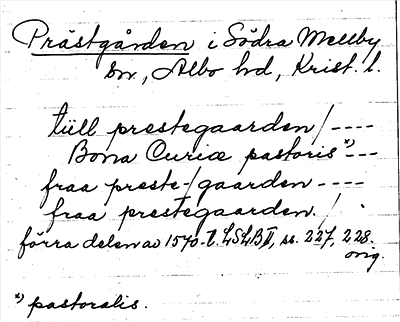 Prästgården i Södra Mellby
sn, Albo hd, Krist. l.
tiill prestegaarden/----
Bona Curiæ pastoris*)---
fraa preste-/gaarden ----
fraa prestegaarden./ .
förra delen av 1570-t. LSLB II, ss. 227, 228.
orig.
*) pastoralis.